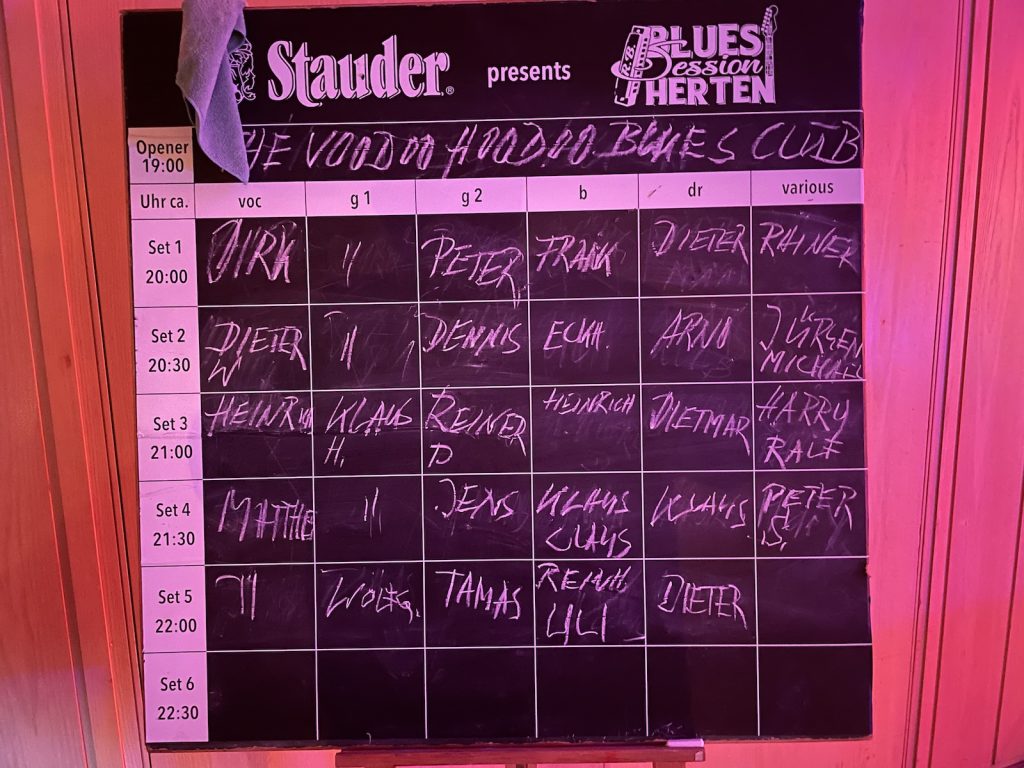 Stauder® presents BLUES Session HERTEN
Opener 19:00 THE VOODOO HOODOO BLUES CLUB
Uhr ca. voc g 1 g 2 b dr various
Set 1 20:00 DIRK " PETER FRANK DIETER RAINER
Set 2 20:30 DIETER W " DENNIS ECKH. ARNO JÜRGEN MICHAEL
Set 3 21:00 HEINRICH KLAUS H. REINER D HEINRICH DIETMAR HARRY RALF
Set 4 21:30 MATTHE " JENS KLAUS CLAUS KLAUS PETER S.
Set 5 22:00 " WOLFG. TAMAS ULI DIETER
Set 6 22:30